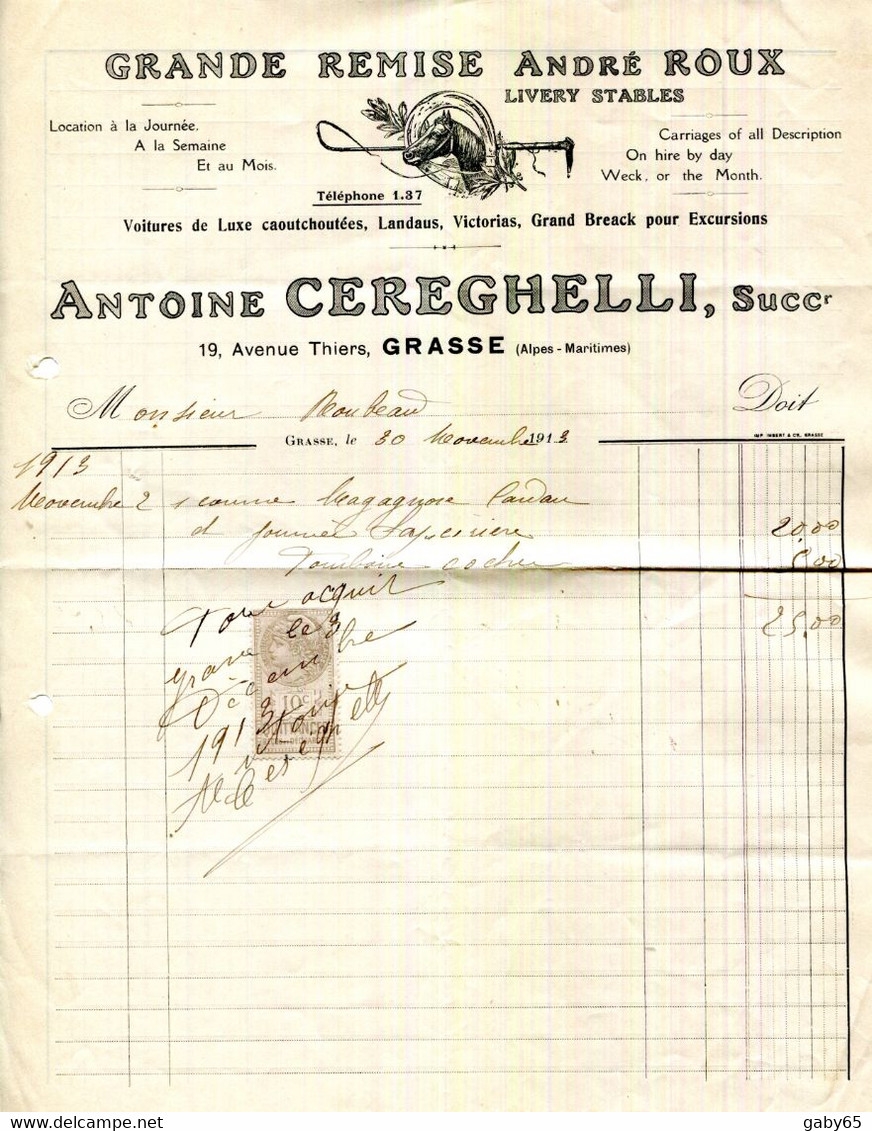 GRANDE REMISE ANDRÉ ROUX
LIVERY STABLES
Location à la Journée.
A la Semaine
Et au Mois.
Carriages of all Description
On hire by day
Weck, or the Month.
Téléphone 1.37
Voitures de Luxe caoutchoutées, Landaus, Victorias, Grand Breack pour Excursions
ANTOINE CEREGHELLI, Succr
19, Avenue Thiers, GRASSE (Alpes-Maritimes)
Monsieur Doit
GRASSE, le 30 Novembre 1913
IMP. IMBERT & CIE, GRASSE
1913
Novembre 2 1 Magagnose Landau
et journée 20,00
cocher 5,00
25,00
Pour acquit
le 3
Décembre
1913
10c
gaby65